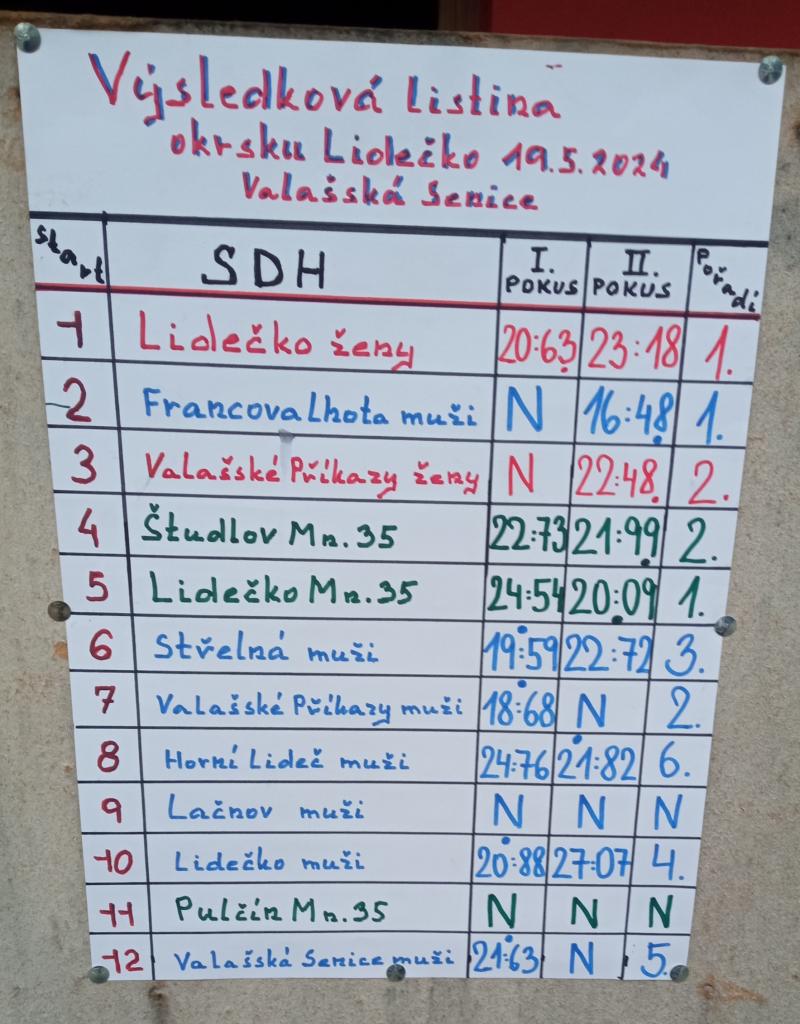 Výsledková listina
okrsku Lidečko 19.5.2024
Valašská Senice
start SDH I. POKUS II. POKUS Pořadí
1 Lidečko ženy 20:63 23:18 1.
2 Francova Lhota muži N 16:48 1.
3 Valašské Příkazy ženy N 22:48 2.
4 Študlov Mn.35 22:73 21:99 2.
5 Lidečko Mn.35 24:54 20:09 1.
6 Střelná muži 19:59 22:72 3.
7 Valašské Příkazy muži 18:68 N 2.
8 Horní Lideč muži 24:76 21:82 6.
9 Lačnov muži N N N
10 Lidečko muži 20:88 27:07 4.
11 Pulčín Mn.35 N N N
12 Valašská Senice muži 21:63 N 5.